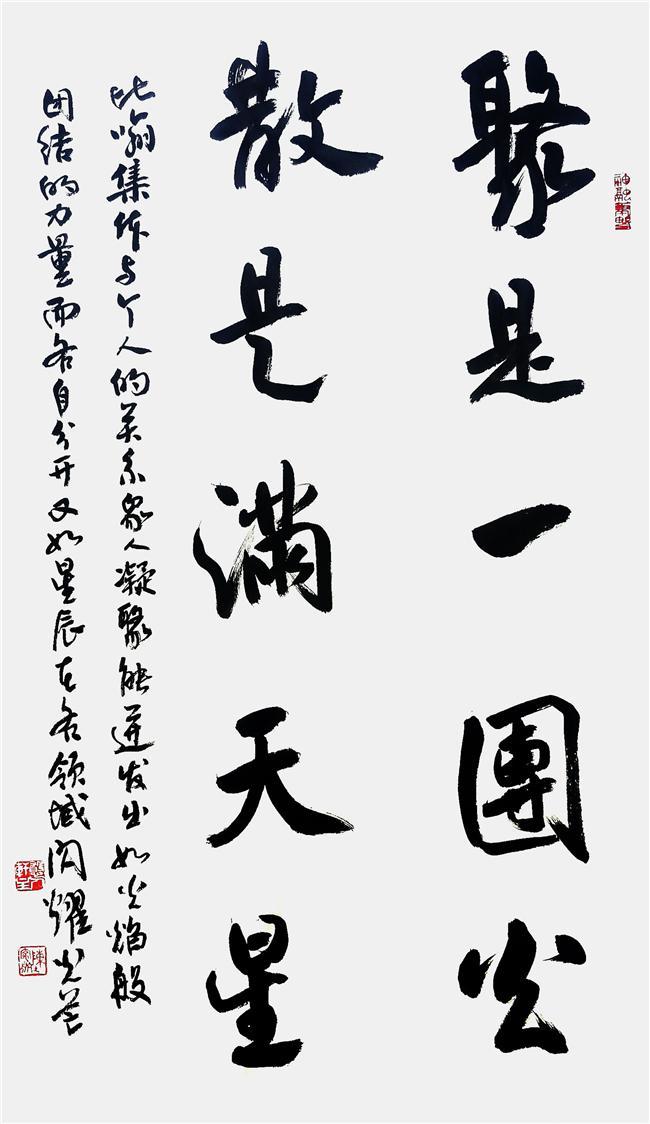 聚是一團火
散是滿天星
比喻集体与个人的关系众人凝聚能迸发出如火焰般
团结的力量而各自分开又如星辰在各领域闪耀光芒